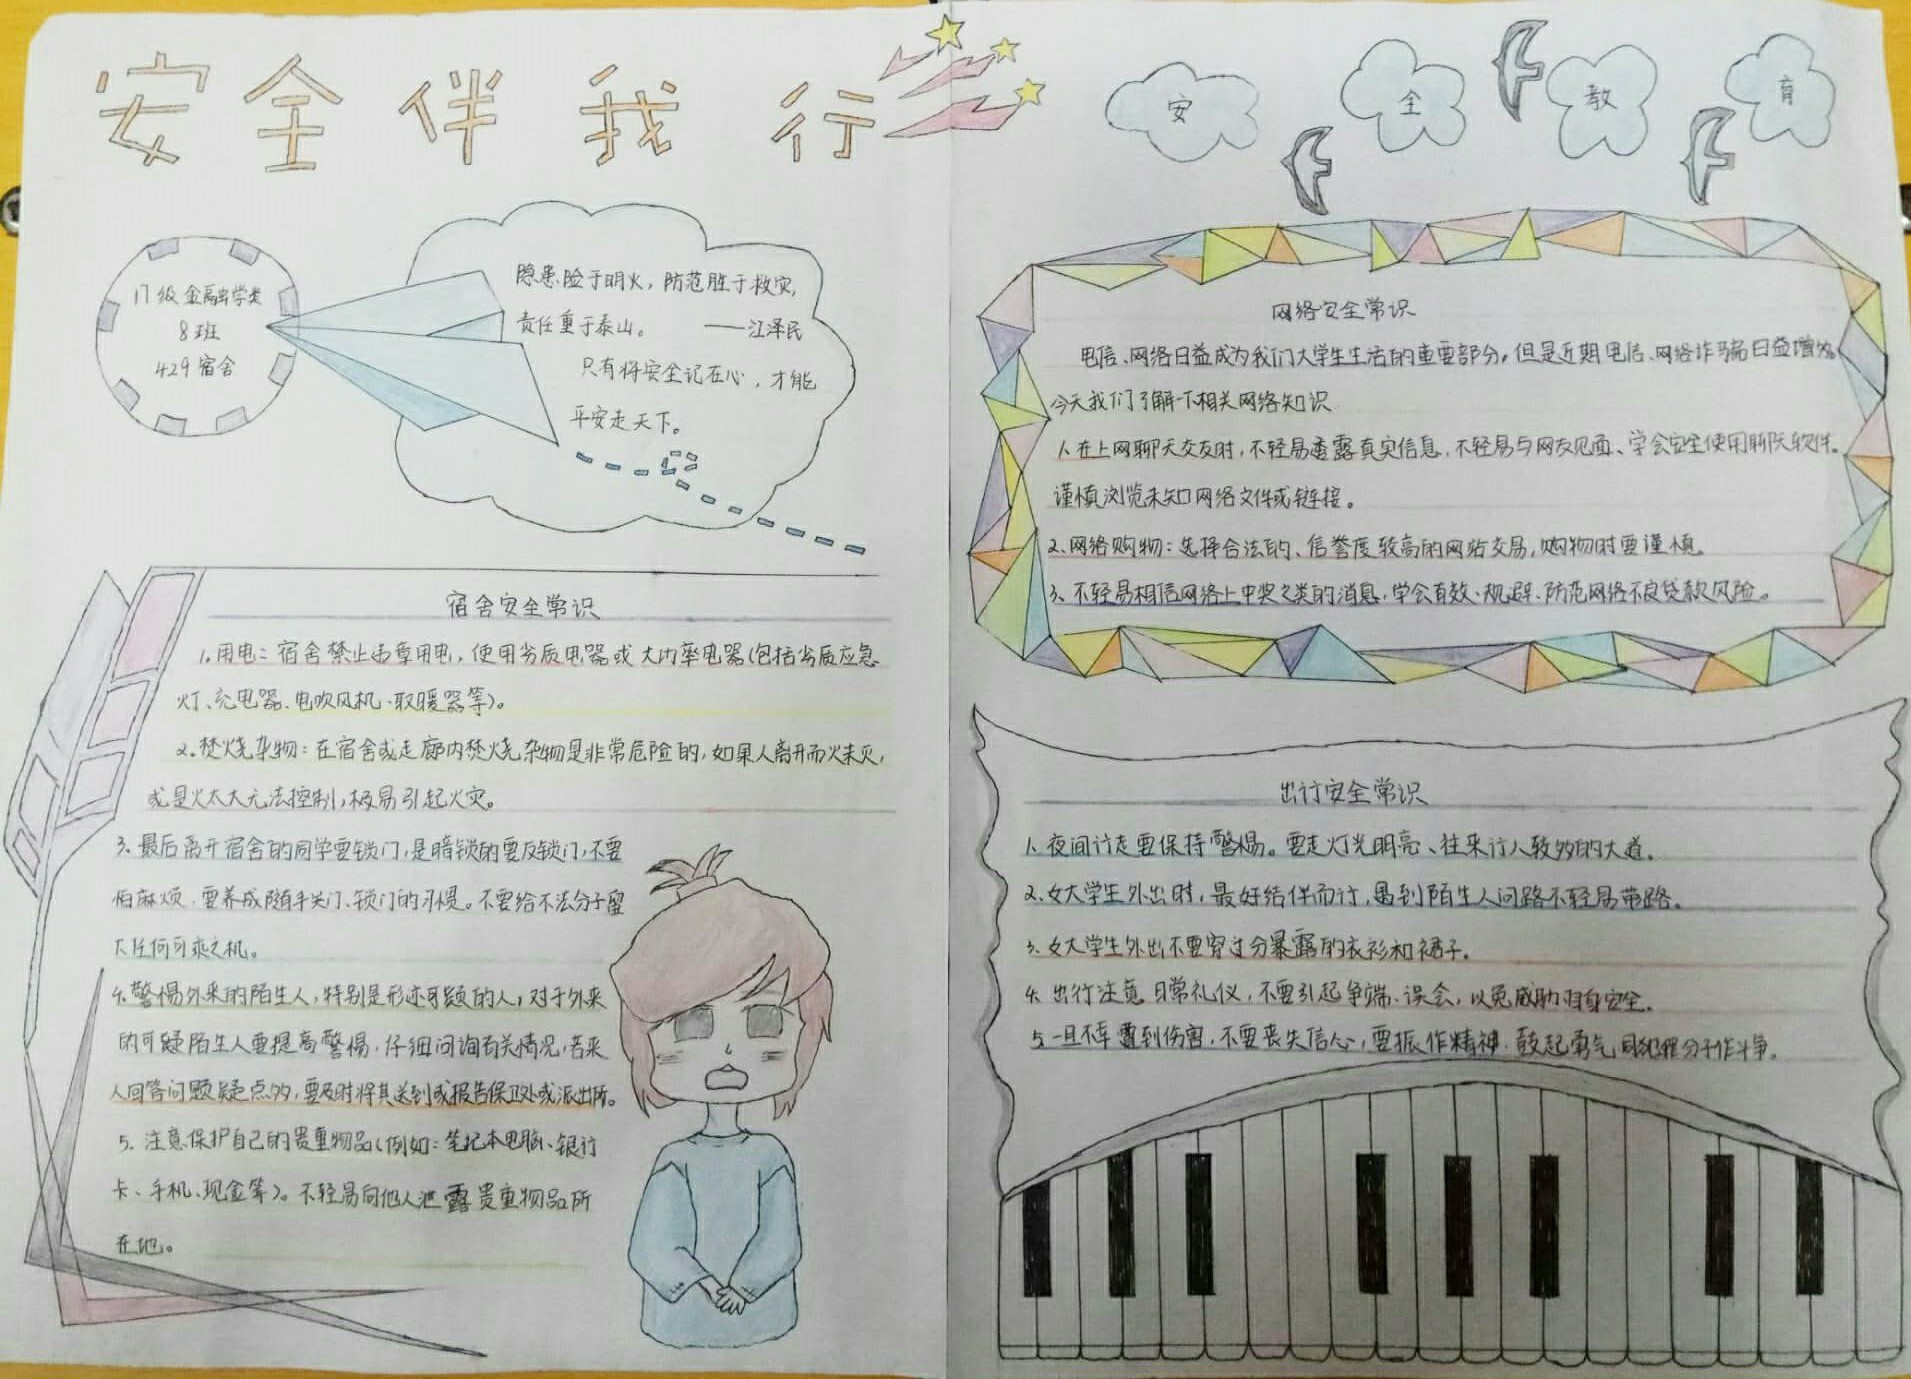 安全伴我行
17级金融学类
8班
429宿舍
隐患险于明火，防范胜于救灾，
责任重于泰山。 ——江泽民
只有将安全记在心，才能
平安走天下。
宿舍安全常识
1.用电：宿舍禁止违章用电，使用劣质电器或大功率电器(包括劣质应急
灯、充电器、电吹风机、取暖器等)。
2.焚烧杂物：在宿舍或走廊内焚烧杂物是非常危险的，如果人离开而火未灭，
或是火太大无法控制，极易引起火灾。
3.最后离开宿舍的同学要锁门，是暗锁的要反锁门，不要
怕麻烦，要养成随手关门、锁门的习惯。不要给不法分子留
下任何可乘之机。
4.警惕外来的陌生人，特别是形迹可疑的人，对于外来
的可疑陌生人要提高警惕，仔细问询有关情况，若来
人回答问题疑点多，要及时将其送到或报告保卫处或派出所。
5.注意保护自己的贵重物品(例如：笔记本电脑、银行
卡、手机、现金等)。不轻易向他人泄露贵重物品所
在地。
安全教育
网络安全常识
电信、网络日益成为我们大学生生活的重要部分，但是近期电信、网络诈骗日益增多，
今天我们了解一下相关网络知识
1、在上网聊天交友时，不轻易透露真实信息，不轻易与网友见面、学会安全使用聊天软件。
谨慎浏览未知网络文件或链接。
2、网络购物：选择合法的、信誉度较高的网站交易，购物时要谨慎。
3、不轻易相信网络上中奖之类的消息，学会有效、规避、防范网络不良贷款风险。
出行安全常识
1、夜间行走要保持警惕。要走灯光明亮、往来行人较多的大道。
2、女大学生外出时，最好结伴而行，遇到陌生人问路不轻易带路。
3、女大学生外出不要穿过分暴露的衣衫和裙子。
4、出行注意日常礼仪，不要引起争端、误会，以免威胁自身安全。
5、一旦不幸遭到伤害，不要丧失信心，要振作精神，鼓起勇气同犯罪分子作斗争。